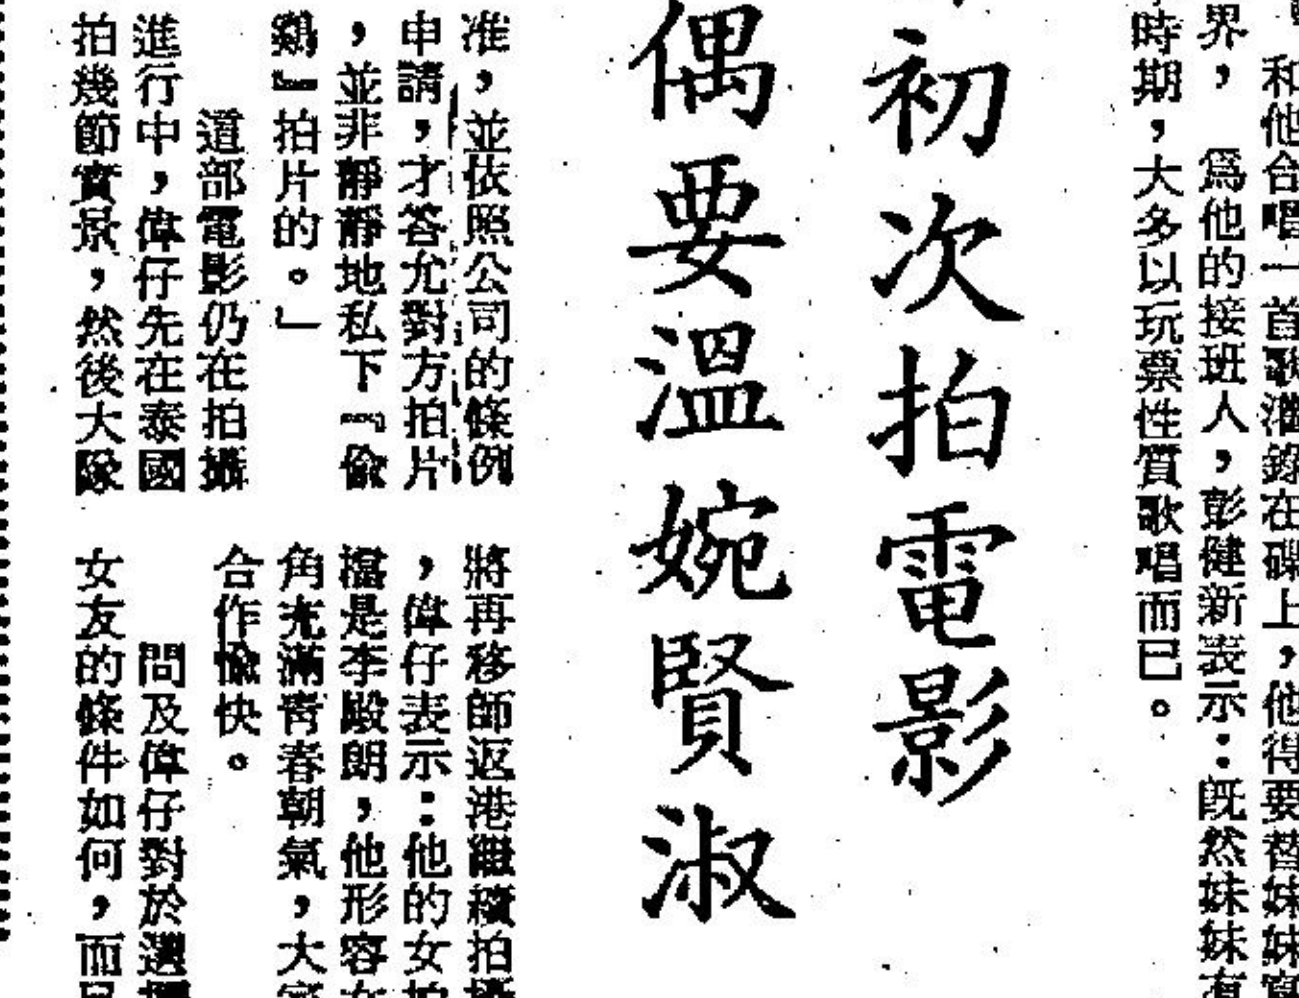 和他合唱一首歌灌錄在碟上，他得要替妹妹
界，為他的接班人，彭健新表示：既然妹妹有
時期，大多以玩票性質歌唱而已。
初次拍電影
偶要溫婉賢淑
准，並依照公司的條例
申請，才答允對方拍片
，並非靜靜地私下『偷
鷄』拍片的。」
這部電影仍在拍攝
進行中，偉仔先在泰國
拍幾節實景，然後大隊
將再移師返港繼續拍攝
，偉仔表示：他的女拍
檔是李殿朗，他形容女
角充滿青春朝氣，大家
合作愉快。
問及偉仔對於選擇
女友的條件如何，而